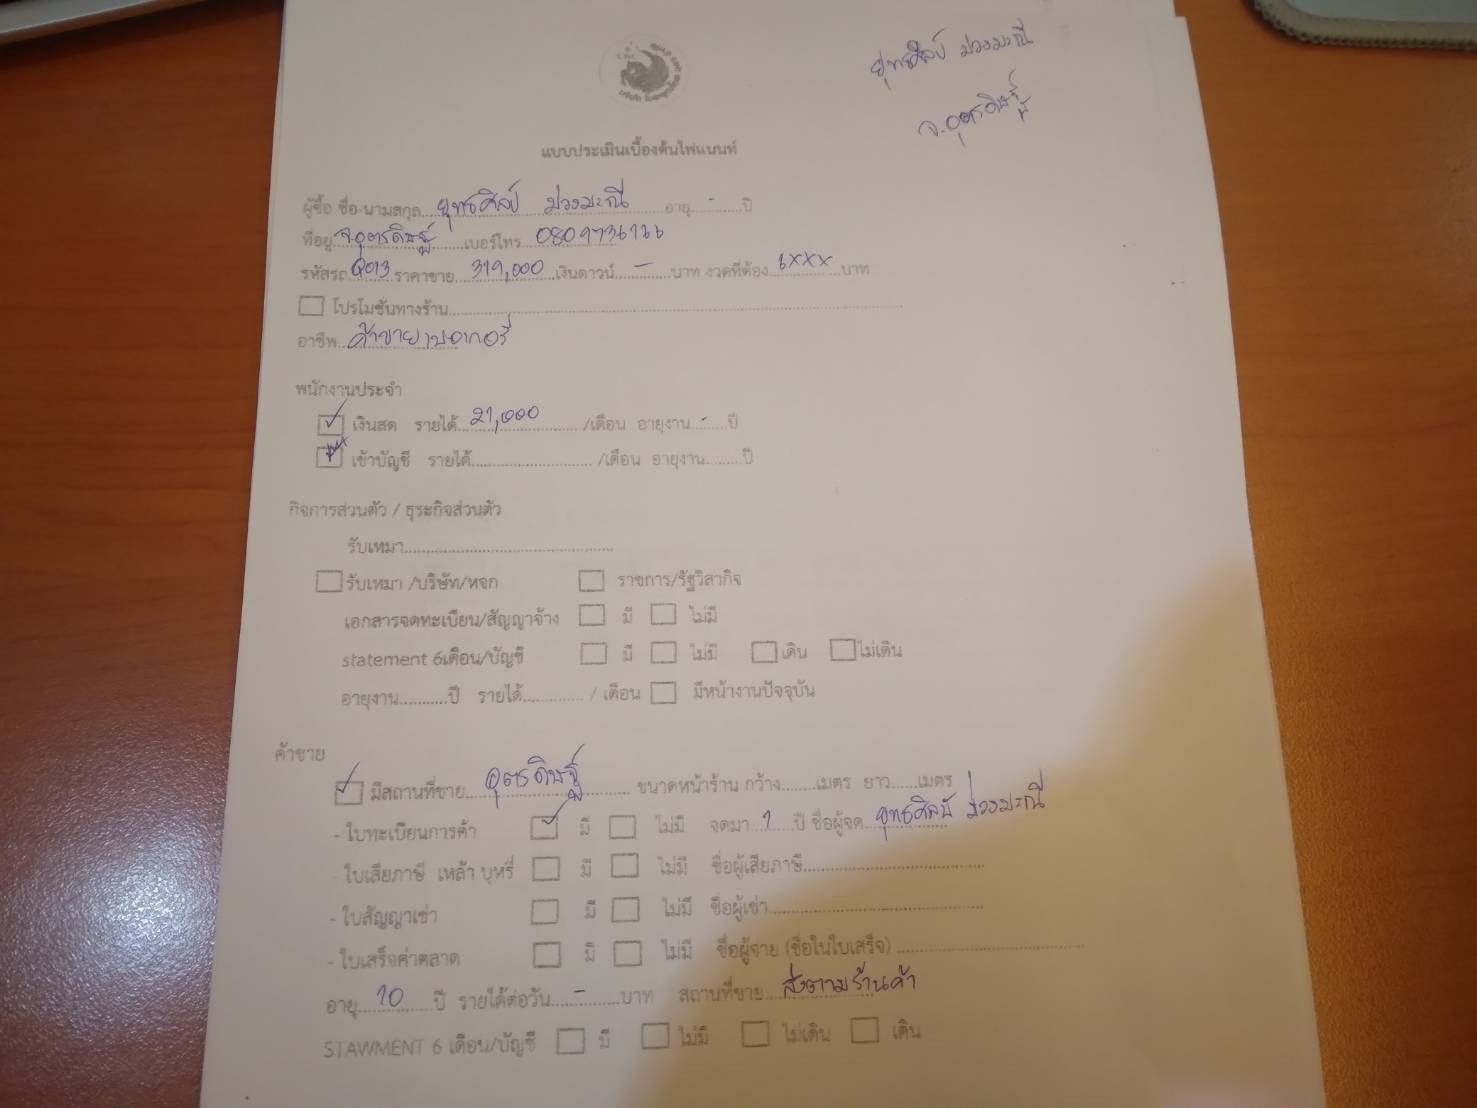 ยุทธศิลป์ ม่วงมะณี
จ.อุตรดิษฐ์
แบบประเมินเบื้องต้นไฟแนนท์
ผู้ซื้อ ชื่อ-นามสกุล ยุทธศิลป์ ม่วงมะณี อายุ - ปี
ที่อยู่ จ.อุตรดิษฐ์ เบอร์โทร
รหัสรถ Q013 ราคาขาย 319,000 เงินดาวน์ - บาท งวดที่ต้อง 6xxx บาท
โปรโมชั่นทางร้าน
อาชีพ ค้าขายเบเกอรี่
พนักงานประจำ
เงินสด รายได้ 21,000 /เดือน อายุงาน - ปี
เข้าบัญชี รายได้ /เดือน อายุงาน ปี
กิจการส่วนตัว / ธุระกิจส่วนตัว
รับเหมา
รับเหมา /บริษัท/หจก ราชการ/รัฐวิสากิจ
เอกสารจดทะเบียน/สัญญาจ้าง มี ไม่มี
statement 6เดือน/บัญชี มี ไม่มี เดิน ไม่เดิน
อายุงาน ปี รายได้ / เดือน มีหน้างานปัจจุบัน
ค้าขาย
มีสถานที่ขาย อุตรดิษฐ์ ขนาดหน้าร้าน กว้าง เมตร ยาว เมตร
- ใบทะเบียนการค้า มี ไม่มี จดมา 1 ปี ชื่อผู้จด ยุทธศิลป์ ม่วงมะณี
- ใบเสียภาษี เหล้า บุหรี่ มี ไม่มี ชื่อผู้เสียภาษี
- ใบสัญญาเช่า มี ไม่มี ชื่อผู้เช่า
- ใบเสร็จค่าตลาด มี ไม่มี ชื่อผู้จ่าย (ชื่อในใบเสร็จ)
อายุ 10 ปี รายได้ต่อวัน - บาท สถานที่ขาย ส่งตามร้านค้า
STAWMENT 6 เดือน/บัญชี มี ไม่มี ไม่เดิน เดิน